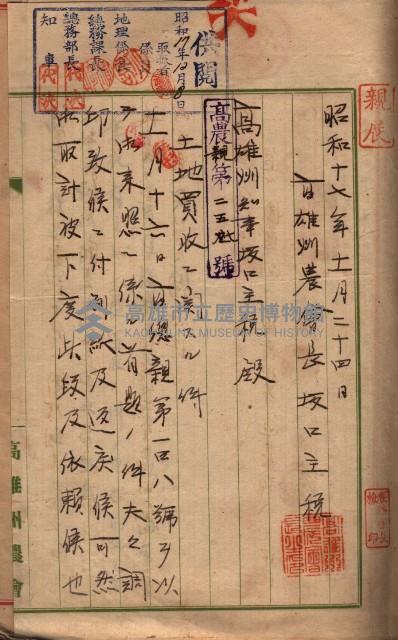 親展
昭和十七年十一月二十四日
高雄州農會長 坂口主税
高雄州知事坂口主税殿
高農親第二五五號
土地買收ニ關スル件
十一月十六日高總親第一〇八號ヲ以
テ御來照ニ係ル首題ノ件夫々調
印致候ニ付別紙及返戻候可然
御取計被下度此段及依賴候也
供閲
昭和17年12月8日
取扱者
係
地理係長
總務課長
總務部長
知事
代決
高雄州農會
高雄市立歷史博物館
KAOHSIUNG MUSEUM OF HISTORY